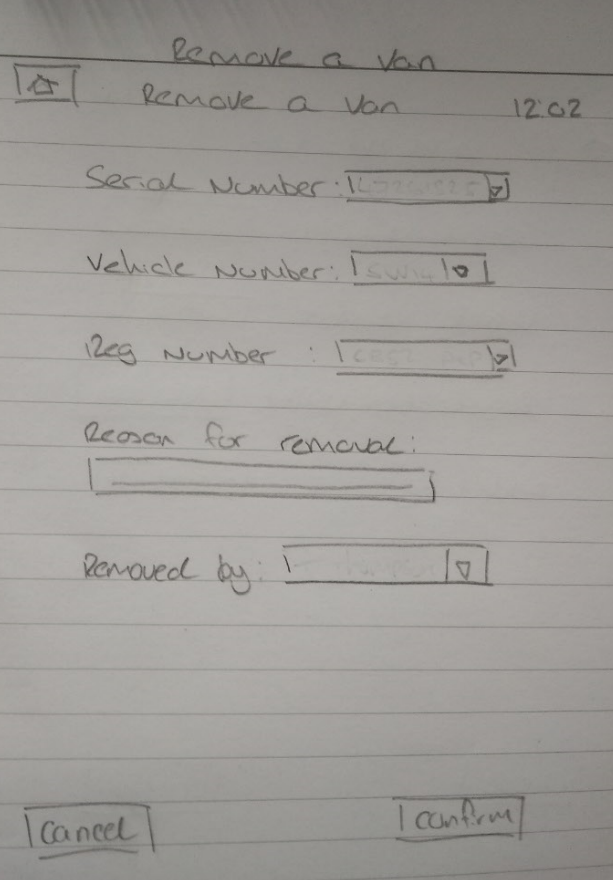 Remove a Van
Remove a Van 12:02
Serial Number:
Vehicle Number:
Reg Number :
Reason for removal:
Removed by:
Cancel confirm